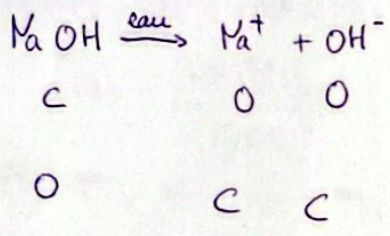 NaOH eau→ Na⁺ + OH⁻
C O O
O C C